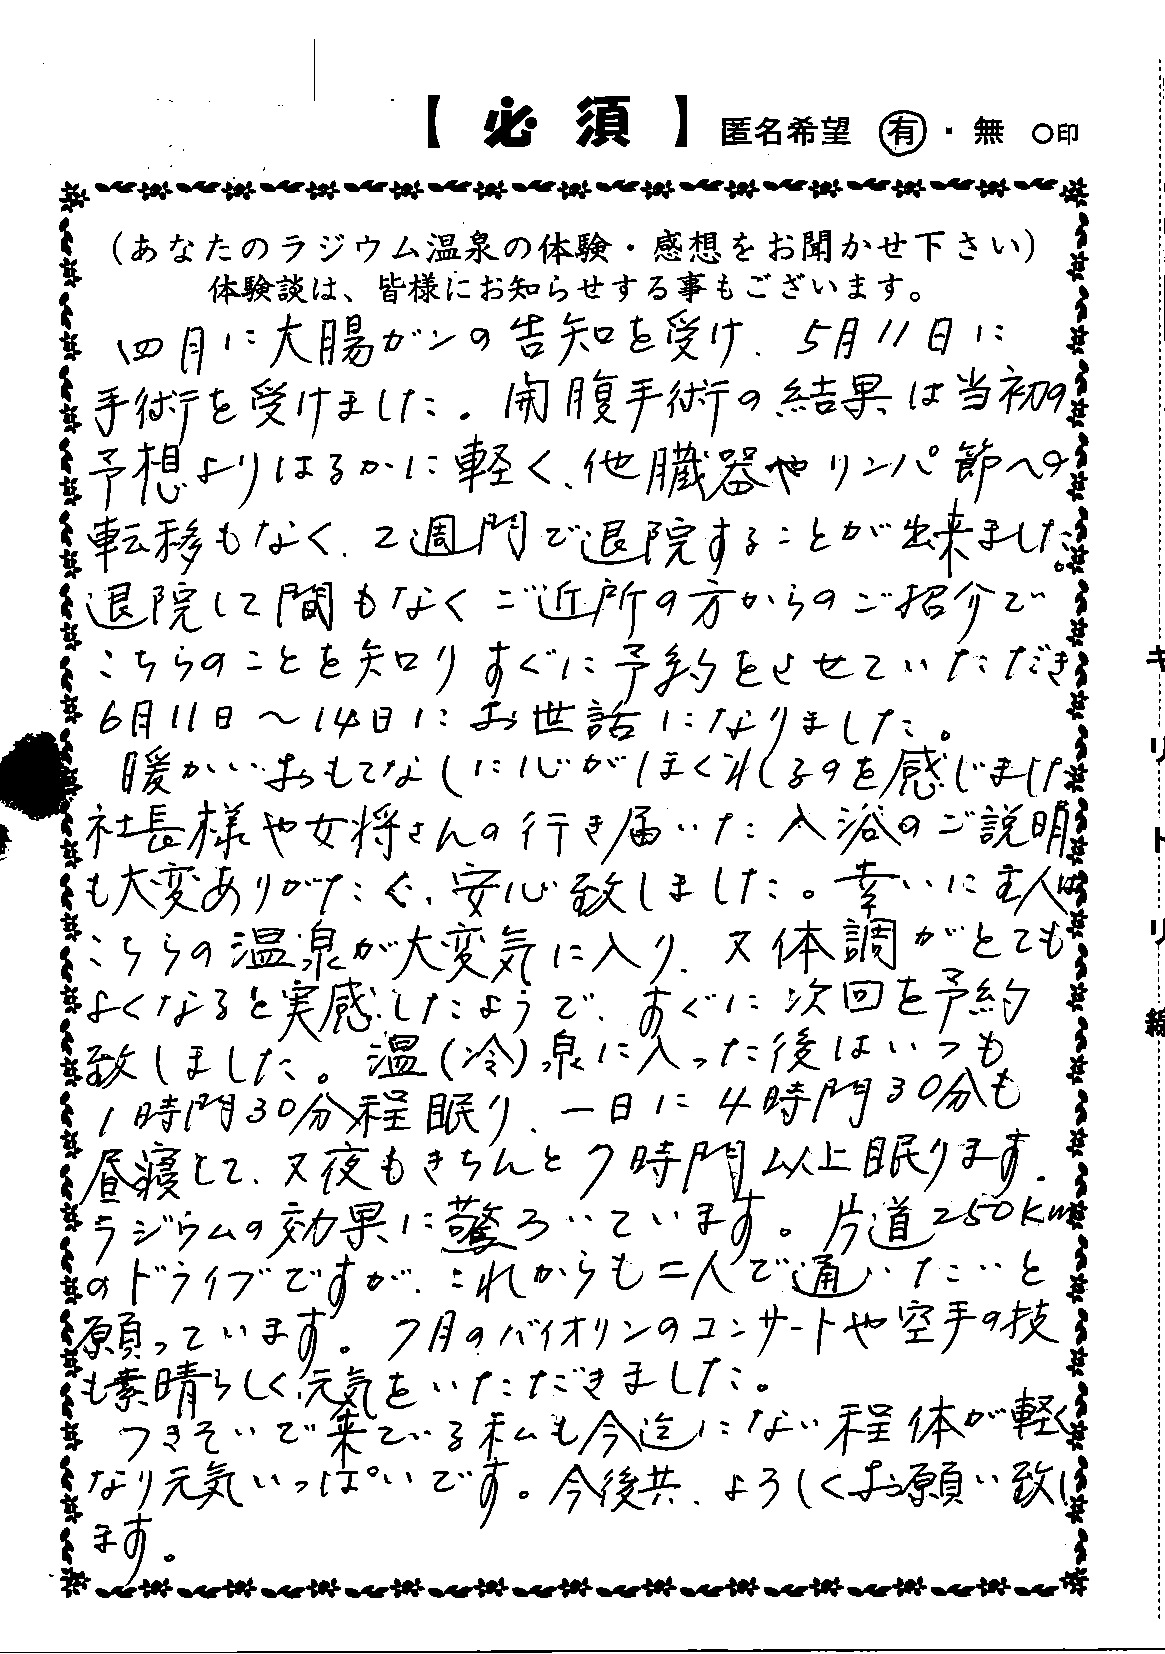 【必須】 匿名希望 有・無 ○印
(あなたのラジウム温泉の体験・感想をお聞かせ下さい)
体験談は、皆様にお知らせする事もございます。
四月に大腸ガンの告知を受け、5月11日に
手術を受けました。開腹手術の結果は当初の
予想よりはるかに軽く、他臓器やリンパ節への
転移もなく、2週間で退院することが出来ました。
退院して間もなくご近所の方からのご紹介で
こちらのことを知りすぐに予約をさせていただき
6月11日〜14日にお世話になりました。
暖かいおもてなしに心がほぐれるのを感じました
社長様や女将さんの行き届いた入浴のご説明
も大変ありがたく、安心致しました。幸いに主人は
こちらの温泉が大変気に入り、又体調がとても
よくなると実感したようで、すぐに次回を予約
致しました。温(冷)泉に入った後はいつも
1時間30分程眠り、一日に4時間30分も
昼寝して、又夜もきちんと7時間以上眠ります。
ラジウムの効果に驚ろいています。片道250km
のドライブですが、これからも二人で通いたいと
願っています。7月のバイオリンのコンサートや空手の技
も素晴らしく元気をいただきました。
つきそいで来ている私も今迄にない程体が軽く
なり元気いっぱいです。今後共、よろしくお願い致し
ます。
キリトリ線